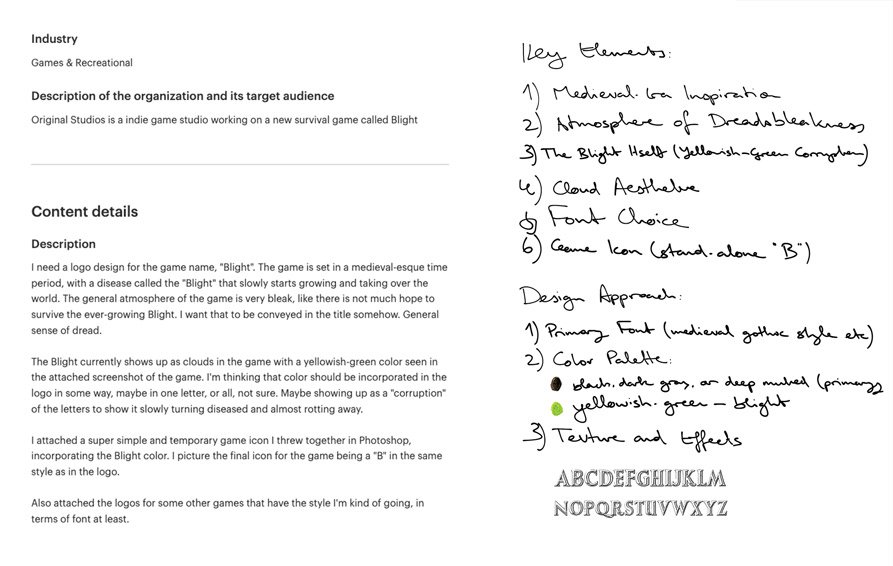 Industry
Games & Recreational
Description of the organization and its target audience
Original Studios is a indie game studio working on a new survival game called Blight
Content details
Description
I need a logo design for the game name, "Blight". The game is set in a medieval-esque time
period, with a disease called the "Blight" that slowly starts growing and taking over the
world. The general atmosphere of the game is very bleak, like there is not much hope to
survive the ever-growing Blight. I want that to be conveyed in the title somehow. General
sense of dread.
The Blight currently shows up as clouds in the game with a yellowish-green color seen in
the attached screenshot of the game. I'm thinking that color should be incorporated in the
logo in some way, maybe in one letter, or all, not sure. Maybe showing up as a "corruption"
of the letters to show it slowly turning diseased and almost rotting away.
I attached a super simple and temporary game icon I threw together in Photoshop,
incorporating the Blight color. I picture the final icon for the game being a "B" in the same
style as in the logo.
Also attached the logos for some other games that have the style I'm kind of going, in
terms of font at least.
Key Elements:
1) Medieval-Era Inspiration
2) Atmosphere of Dread&bleakness
3) The Blight Itself (Yellowish-Green Corruption)
4) Cloud Aesthetic
5) Font Choice
6) Game Icon (stand-alone "B")
Design Approach:
1) Primary Font (medieval gothic style etc)
2) Color Palette:
black, dark gray, or deep muted (primary)
yellowish-green – blight
3) Texture and Effects
ABCDEFGHIJKLM
NOPQRSTUVWXYZ